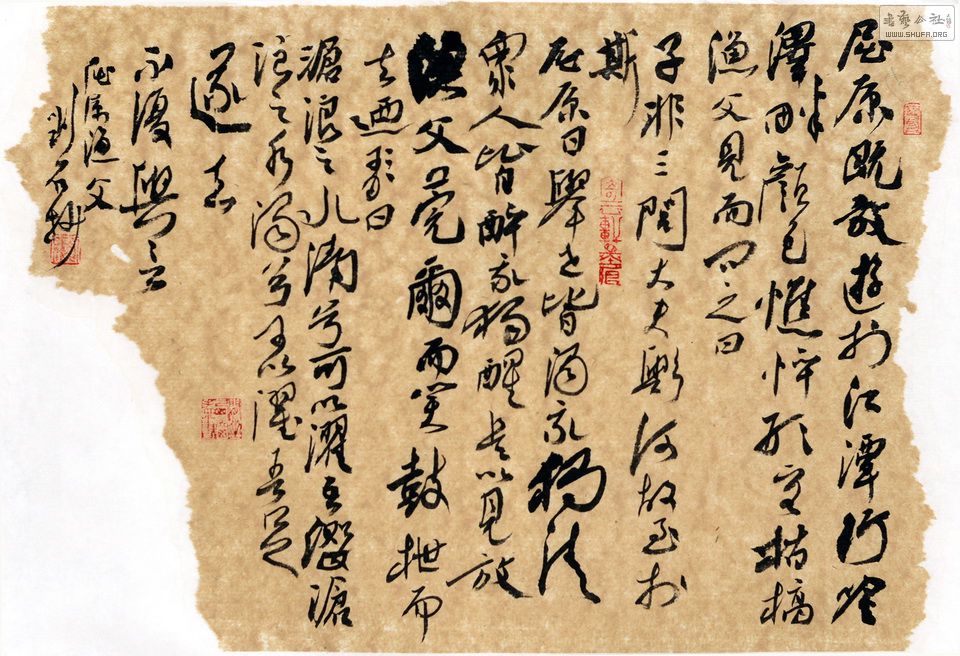 屈原既放遊於江潭行吟
澤畔顏色憔悴形容枯槁
漁父見而問之曰
子非三閭大夫歟何故至於
斯
屈原曰舉世皆濁我獨清
眾人皆醉我獨醒是以見放
漁父莞爾而笑鼓枻而
去迺歌曰
滄浪之水清兮可以濯吾纓滄
浪之水濁兮可以濯吾足
遂去
不復與言
屈原漁父
書藝公社
WWW.SHUFA.ORG